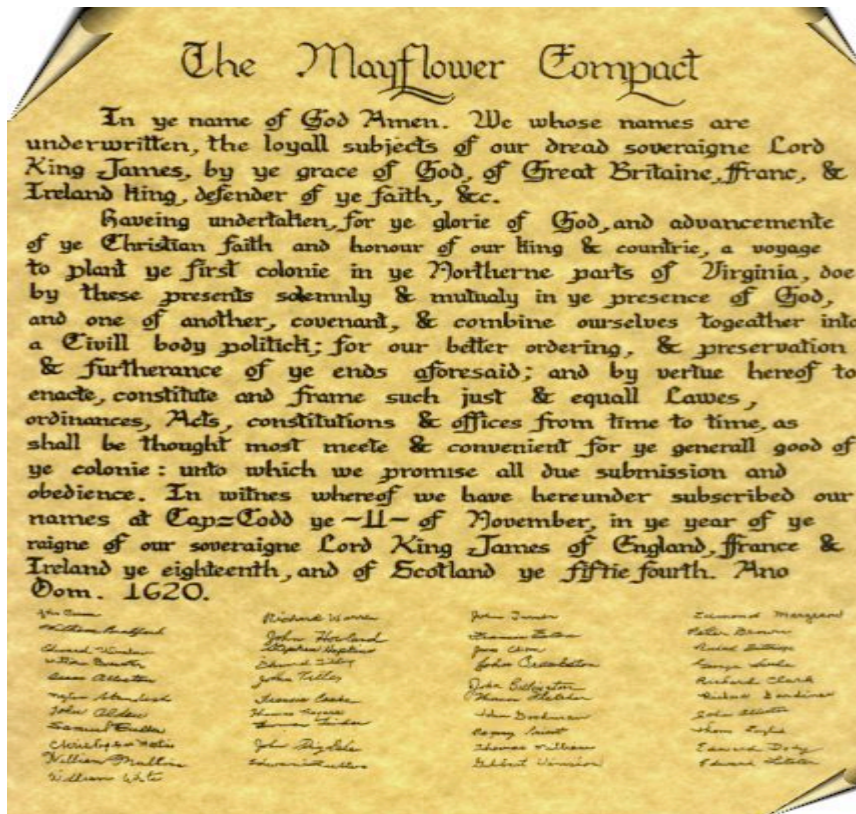 The Mayflower Compact
In ye name of God Amen. We whose names are
underwritten, the loyall subjects of our dread soveraigne Lord
King James, by ye grace of God, of Great Britaine, ffranc, &
Ireland king, defender of ye faith, &c.
Haveing undertaken, for ye glorie of God, and advancemente
of ye Christian faith and honour of our king & countrie, a voyage
to plant ye first colonie in ye Northerne parts of Virginia, doe
by these presents solemnly & mutualy in ye presence of God,
and one of another, covenant, & combine ourselves togeather into
a Civill body politick; for our better ordering, & preservation
& furtherance of ye ends aforesaid; and by vertue hereof to
enacte, constitute and frame such just & equall Lawes,
ordinances, Acts, constitutions & offices from time to time, as
shall be thought most meete & convenient for ye generall good of
ye colonie: unto which we promise all due submission and
obedience. In witnes whereof we have hereunder subscribed our
names at Cap=Codd ye ~11~ of November, in ye year of ye
raigne of our soveraigne Lord King James of England, ffrance &
Ireland ye eighteenth, and of Scotland ye fiftie fourth. Ano
Dom. 1620.
William Bradford
Isaac Allerton
Myles Standish
John Alden
Samuel Fuller
William Mullins
William White
Richard Warren
John Howland
Stephen Hopkins
Edward Tilley
John Tilley
Francis Cooke
Thomas Rogers
John Turner
Francis Eaton
John Crackston
John Billington
Thomas Williams
Gilbert Winslow
Edmond Margeson
Peter Brown
Richard Clark
Richard Gardiner
John Allerton
Edward Doty